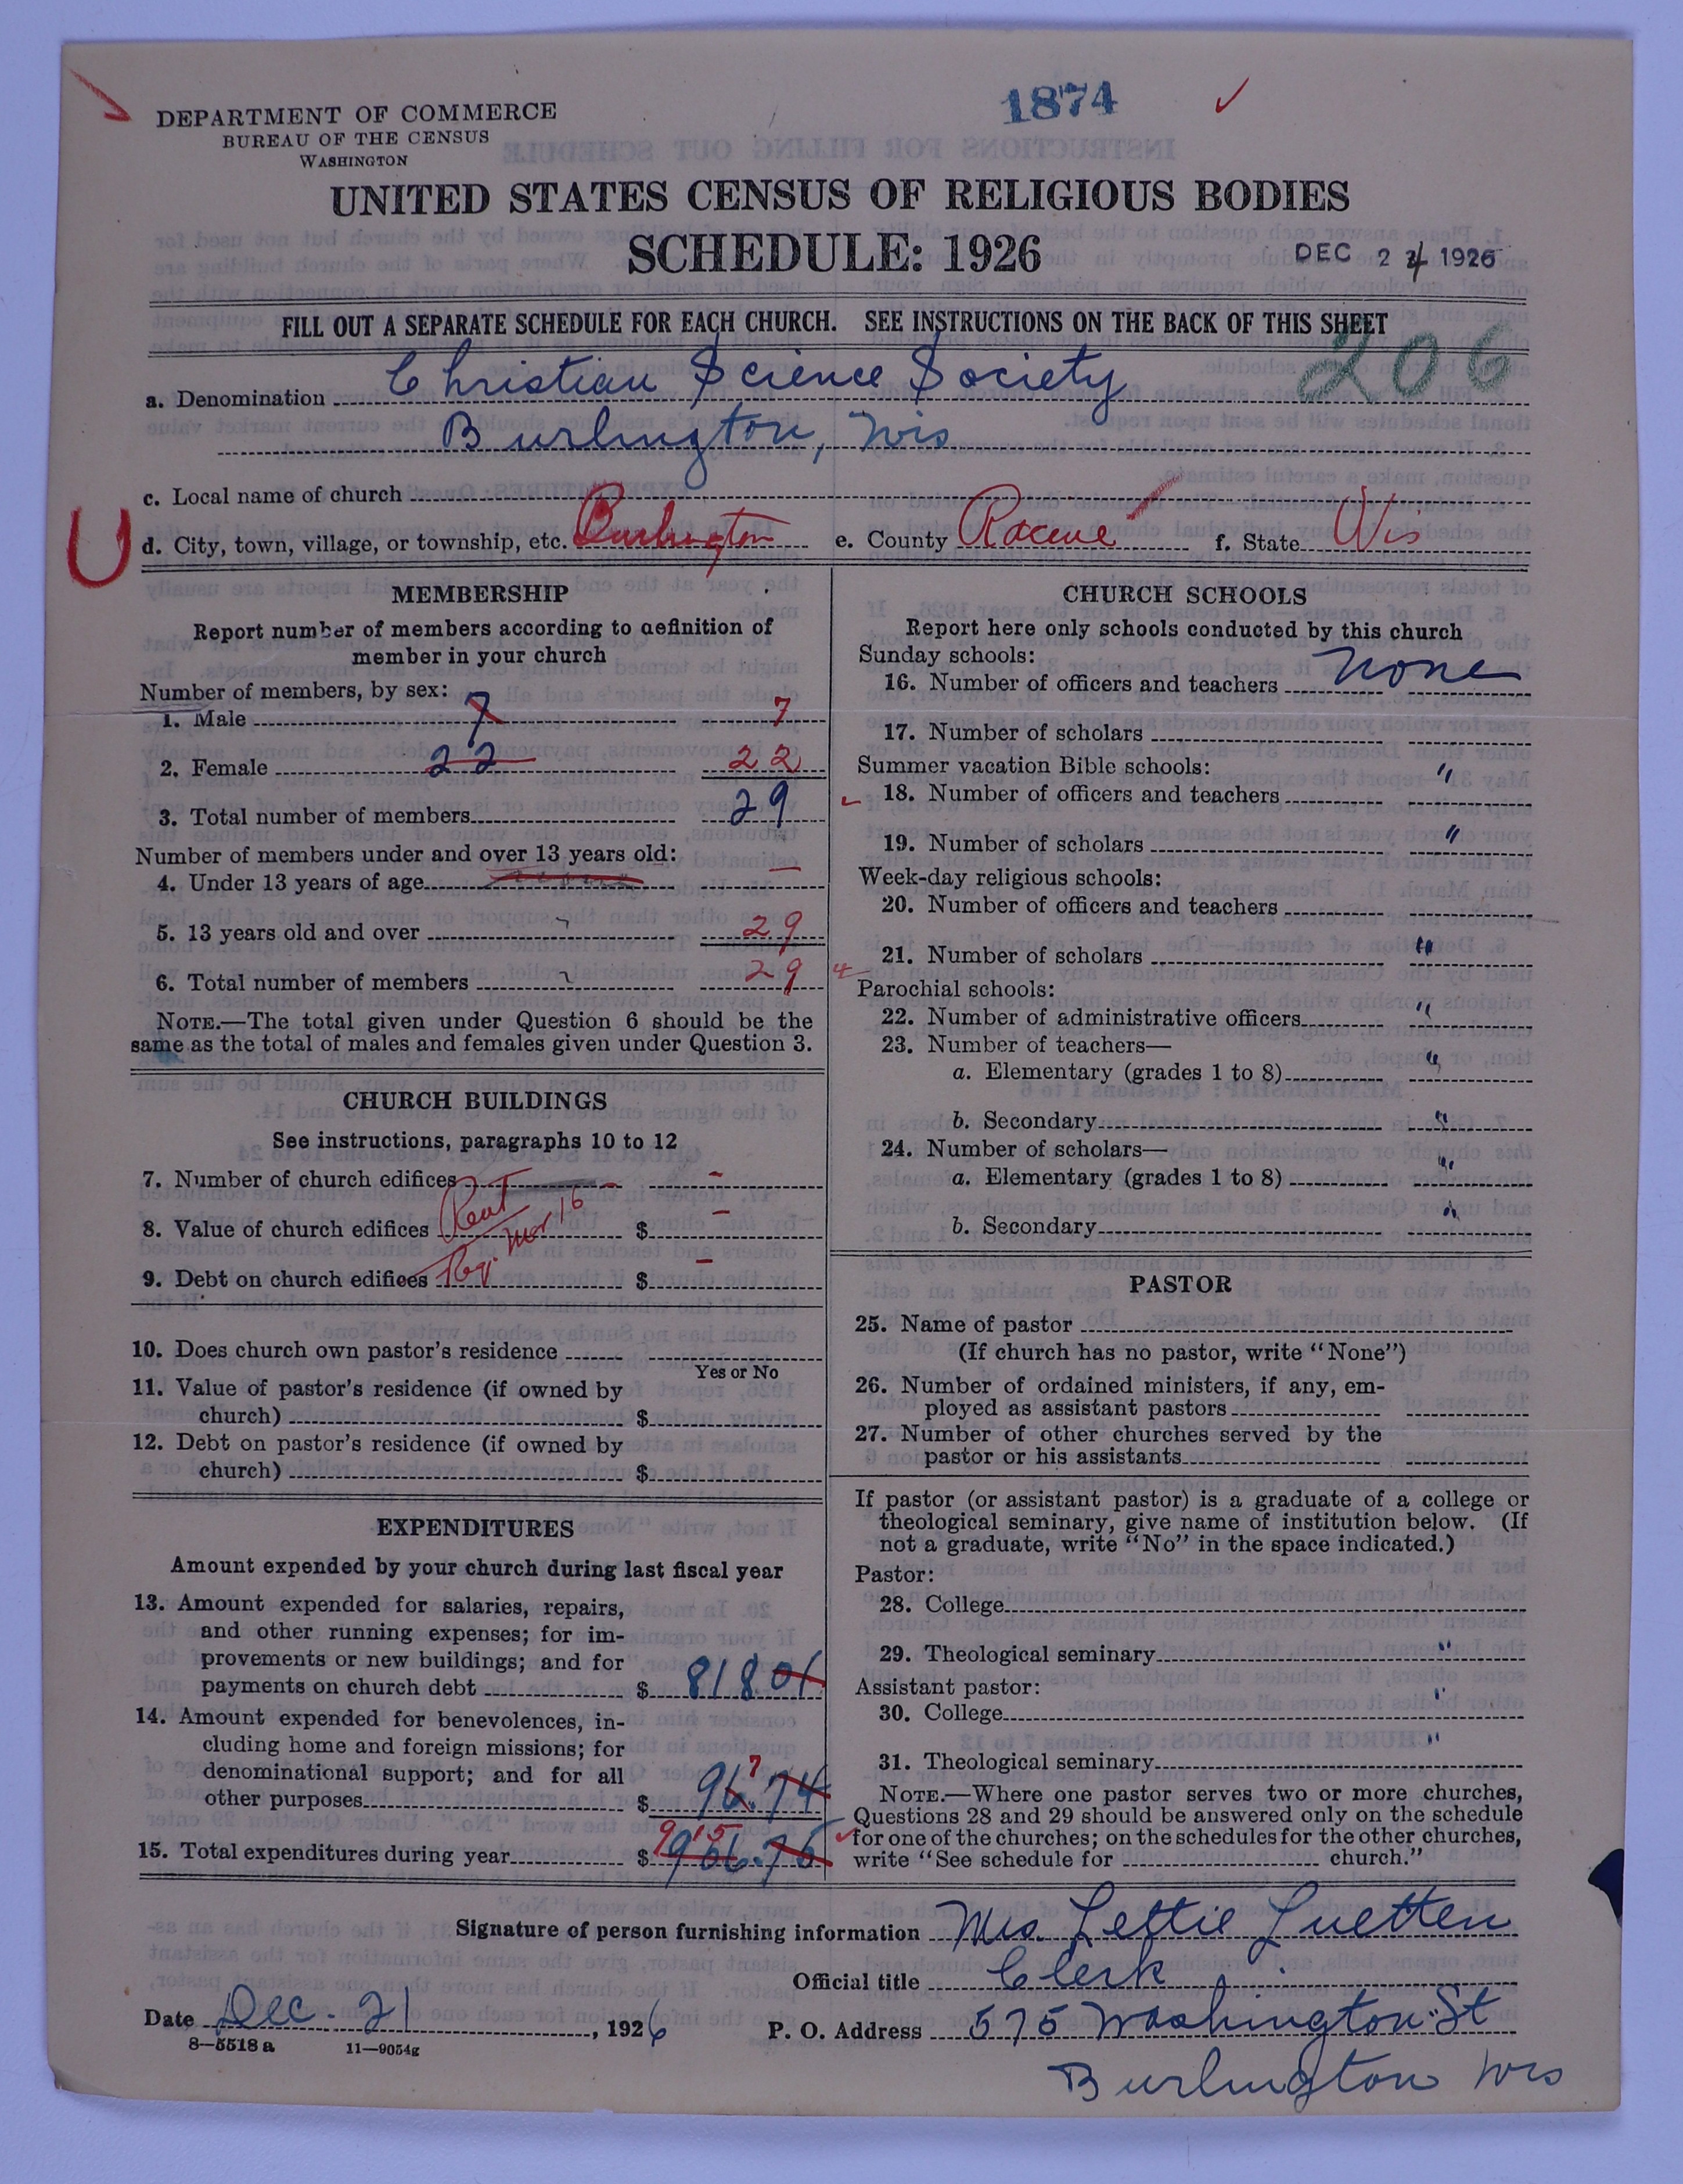 1874 ✓
DEPARTMENT OF COMMERCE
BUREAU OF THE CENSUS
WASHINGTON
UNITED STATES CENSUS OF RELIGIOUS BODIES
SCHEDULE: 1926
DEC 24 1926
FILL OUT A SEPARATE SCHEDULE FOR EACH CHURCH. SEE INSTRUCTIONS ON THE BACK OF THIS SHEET
206
a. Denomination Christian Science Society
Burlington, Wis
c. Local name of church
U
d. City, town, village, or township, etc. Burlington e. County Racine f. State Wis
MEMBERSHIP
Report number of members according to definition of
member in your church
Number of members, by sex:
1. Male 7 7
2. Female 22 22
3. Total number of members 29
Number of members under and over 13 years old:
4. Under 13 years of age —
5. 13 years old and over 29
6. Total number of members 29
NOTE.—The total given under Question 6 should be the
same as the total of males and females given under Question 3.
CHURCH BUILDINGS
See instructions, paragraphs 10 to 12
7. Number of church edifices –
Rent
8. Value of church edifices $ –
9. Debt on church edifices $ –
10. Does church own pastor's residence
Yes or No
11. Value of pastor's residence (if owned by
church) $
12. Debt on pastor's residence (if owned by
church) $
EXPENDITURES
Amount expended by your church during last fiscal year
13. Amount expended for salaries, repairs,
and other running expenses; for im-
provements or new buildings; and for
payments on church debt $ 818 01
14. Amount expended for benevolences, in-
cluding home and foreign missions; for
denominational support; and for all
other purposes $ 96.74
7
15. Total expenditures during year $
915
CHURCH SCHOOLS
Report here only schools conducted by this church
Sunday schools:
16. Number of officers and teachers none
17. Number of scholars
Summer vacation Bible schools:
18. Number of officers and teachers "
19. Number of scholars "
Week-day religious schools:
20. Number of officers and teachers
21. Number of scholars "
Parochial schools:
22. Number of administrative officers "
23. Number of teachers—
a. Elementary (grades 1 to 8) "
b. Secondary "
24. Number of scholars—
a. Elementary (grades 1 to 8) "
b. Secondary "
PASTOR
25. Name of pastor
(If church has no pastor, write "None")
26. Number of ordained ministers, if any, em-
ployed as assistant pastors
27. Number of other churches served by the
pastor or his assistants
If pastor (or assistant pastor) is a graduate of a college or
theological seminary, give name of institution below. (If
not a graduate, write "No" in the space indicated.)
Pastor:
28. College
29. Theological seminary "
Assistant pastor:
30. College "
31. Theological seminary "
NOTE.—Where one pastor serves two or more churches,
Questions 28 and 29 should be answered only on the schedule
for one of the churches; on the schedules for the other churches,
write "See schedule for church."
Signature of person furnishing information Mrs. Lettie Luetten
Official title Clerk
Date Dec. 21, 1926 P. O. Address 575 Washington St
8—5518 a 11—9054g
Burlington Wis